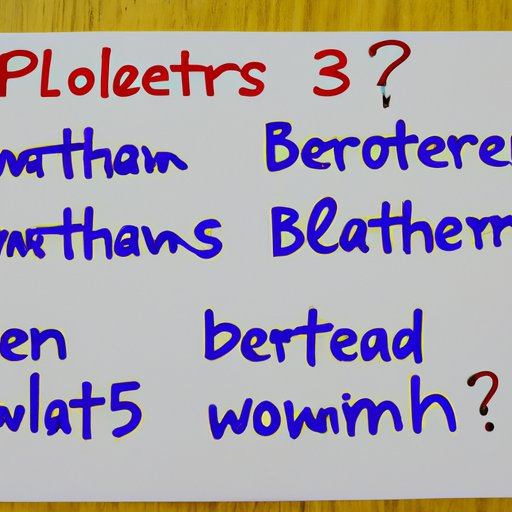 Ploleetrs 3?
watham Beroteren
wnethans Blathern
en bertead
wlat5 wownimh?